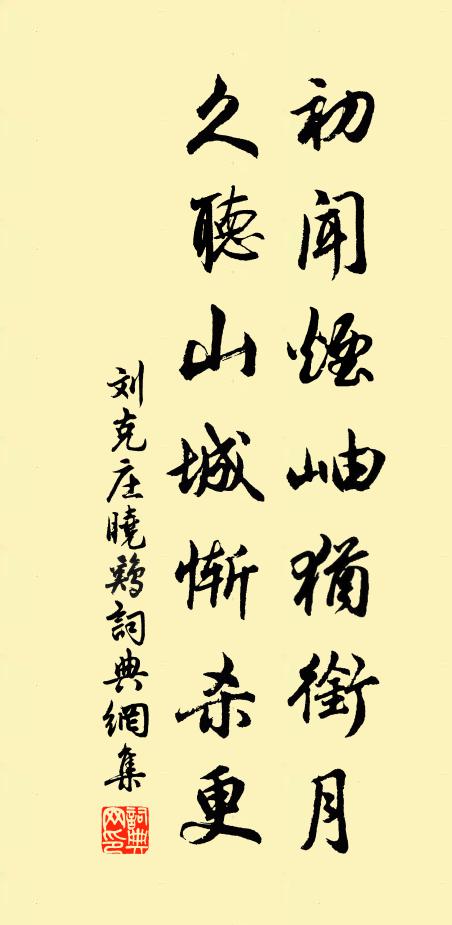 初闻烟岫犹衔月
久聽山城惭杀更
刘克庄曉鷄詞典網集
詞典网印